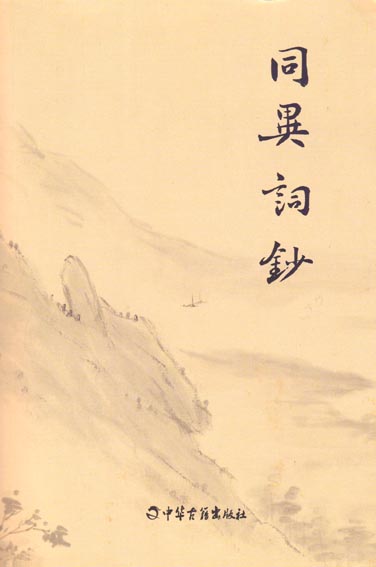 同異詞鈔
中华古籍出版社